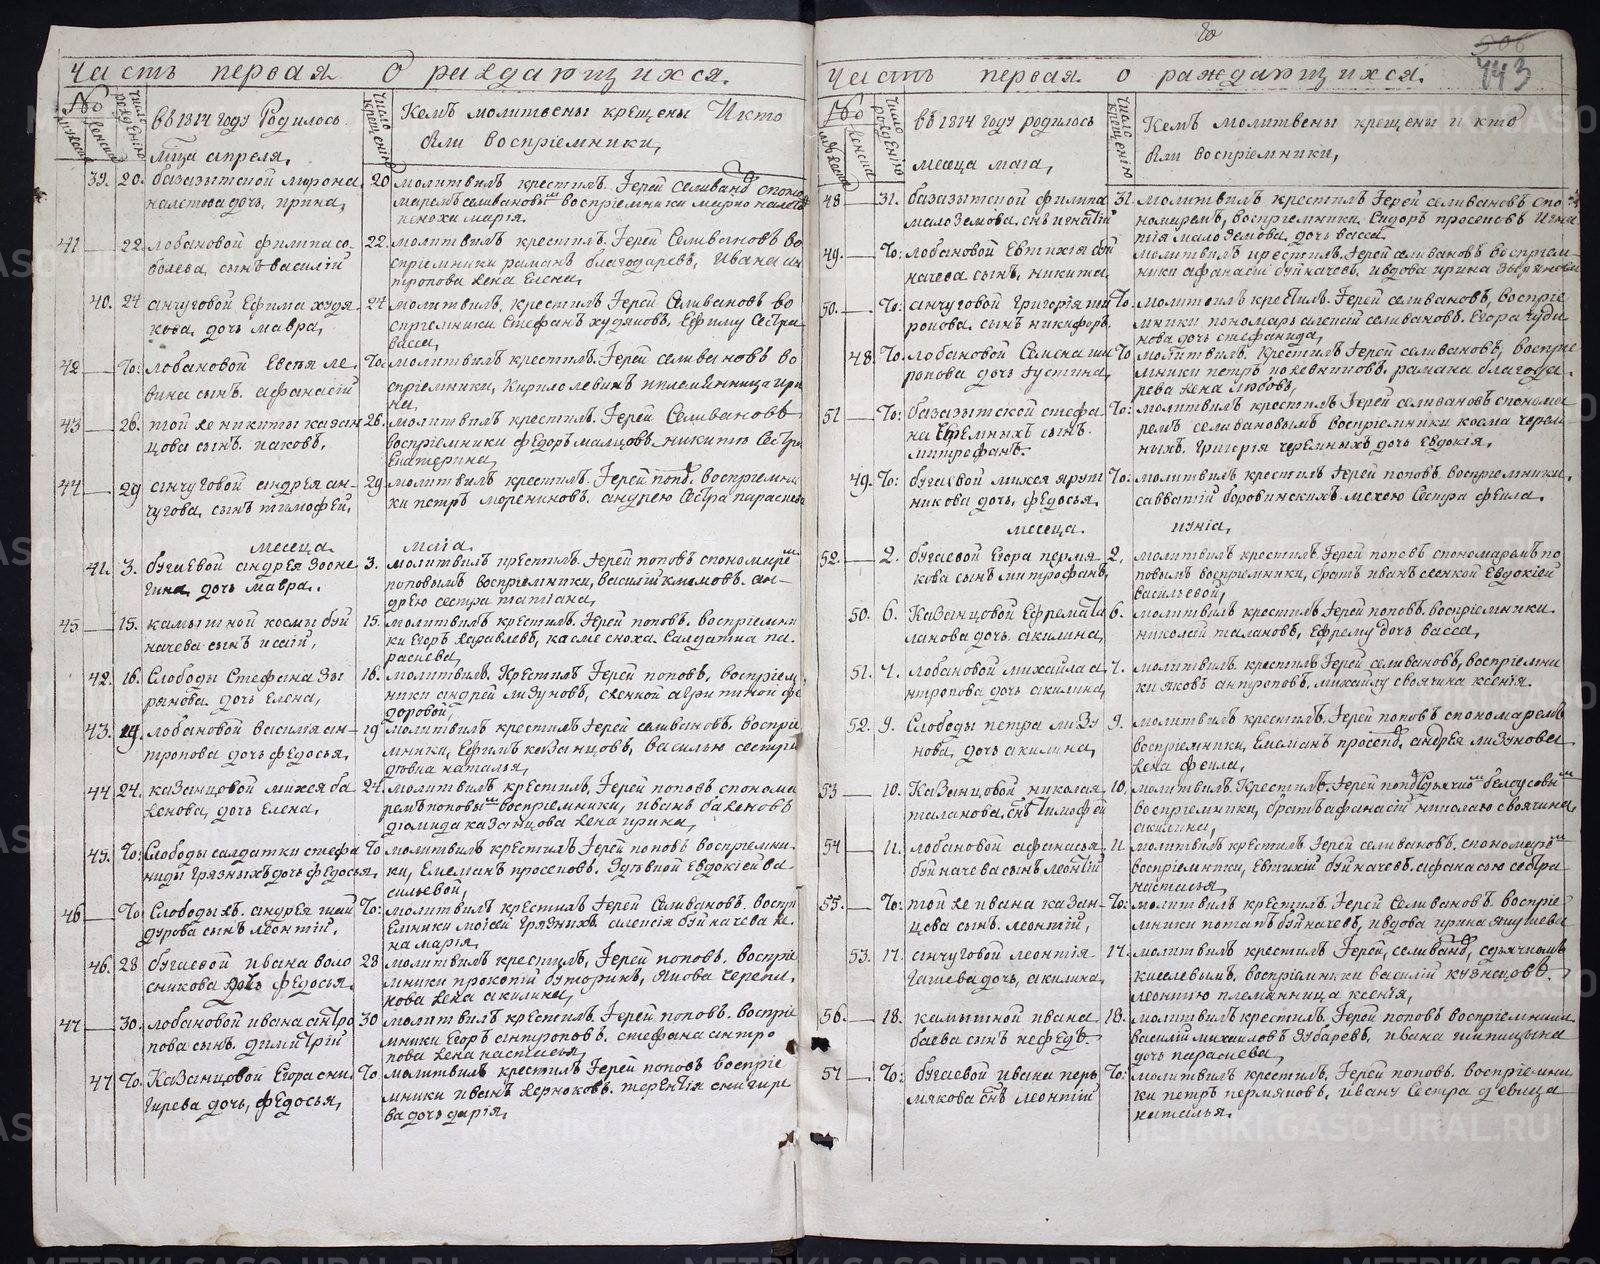 Часть первая О раждающихся.
№
мужеска
женска
число рожденію
въ 1814 году Родилось
мца апреля,
число крещенію
Кемъ молитвены крещены И кто
были воспріемники,
39. 20. базазытской мирона
налетова дочь, ирина,
20 молитвилъ крестилъ Іерей селиванов спонома
маремъ селивановым воспріемники
сноха марія.
41 22. лобановой филипа со-
болева, сынъ василій
22. молитвилъ крестилъ Іерей Селивановъ во
спріемники раманъ благодаревъ, Ивана ан
тропова жена Елена,
40. 24 анчуговой Ефима худя-
кова, дочь мавра,
24 молитвилъ, крестилъ Іерей Селивановъ во
спріемники Стефанъ худяковъ, Ефиму Сестра
васса,
42 То: лобановой Евсѣя ле-
вина сынъ афанасій
То: молитвилъ крестилъ Іерей селивановъ во
спріемники, Кирило левинъ племянница ири
на,
43 26. той же никиты казан
цова сынъ иаковъ,
26. молитвилъ крестилъ Іерей Селивановъ
воспріемники федоръ малцовъ, никиты Сестра
Екатерина,
44 29 анчуговой андрея ан-
чугова, сынъ тимофей,
29 молитвилъ крестилъ Іерей попов. воспріемни
ки петръ андрею Сестра параскева
месеца маіа.
41. 3. бугаевой андрея
дочь мавра.
3. молитвилъ крестилъ Іерей поповъ спономарем
поповымъ воспріемники, василій ан-
дрею сестра татіана,
45 15. камытной космы буй
начева сынъ исаій,
15. молитвилъ крестилъ Іерей поповъ. воспріемни
ки Егоръ журавлевъ, касме сноха Салдатка па-
раскева,
42. 16. Слободы Стефана Зы
рянова дочь Елена,
16. молитвилъ. Крестилъ Іерей поповъ, воспріем-
ники андрей лизуновъ, с женкой агрипиной фе
доровой,
43. 19. лобановой василія ан-
тропова дочь федосья,
19 молитвилъ крестилъ Іерей селивановъ. воспріе
мники, Ефимъ казанцовъ, василью сестра
девка наталья,
44 24. казанцовой михея ба
женова, дочь Елена,
24. молитвилъ крестилъ, Іерей поповъ спонома
ремъ поповым воспріемники, иванъ баженовъ
діомида казанцова жена ирина,
45. То: Слободы салдатки стефа
ниды Грязныхъ дочь федосья,
То молитвилъ крестилъ Іерей поповъ воспріемни-
ки, Емелианъ просековъ. Здевкой Евдокіей ва
сильевой,
46 То: Слободы ж. андрея шай
дурова сынъ леонтій,
То: молитвилъ крестилъ Іерей Селивановъ. воспрі
емники моісей Грязныхъ. алексія буйначева же
на марія,
46. 28 бугаевой ивана воло
сникова дочь федосья.
28 молитвилъ крестилъ, Іерей поповъ. воспріе
мники прокопій буторинъ, якова черепа-
нова жена акилина,
47 30. лобановой ивана антро
пова сынъ димитрій
30 молитвилъ крестилъ. Іерей поповъ. воспріе
мники Егоръ антроповъ. стефана антро
пова жена настасья,
47 То. Казанцовой Егора сни-
гирева дочь, федосья,
То молитвилъ крестилъ Іерей поповъ воспріе
мники иванъ жерноковъ. терентія снигире
ва дочь дарія,
443
Часть первая о раждающихся.
№
мужеска
женска
число рожденію
въ 1814 году родилось
месеца маіа,
число крещенію
Кемъ молитвены крещены и кто
были воспріемники,
48 31. базазытской филипа
малоземова, снъ игнатій
31. молитвилъ крестилъ Іерей селивановъ спо
номаремъ, воспріемники. Сидоръ просековъ Игна
тія малоземова дочь васса.
49. То: лобановой Евтихія буй
начева сынъ, никита
молитвилъ крестилъ. Іерей селивановъ воспріем-
ники афанасій буйначевъ, ивдова ирина Зырянова
50. То: анчуговой Григорія ши
ропова. сынъ никифоръ.
То. молитвилъ крестилъ. Іерей селивановъ, воспріе
мники пономарь алексій селивановъ. Егора чуди
нова дочь стефанида,
48. То. лобановой Семена ши
ропова дочь Густина,
То молитвилъ. Крестилъ Іерей селивановъ, воспріе
мники петръ раманъ благода-
рева жена любовь,
51 То: базазытской стефа
на черемныхъ сынъ
митрофанъ.
То: молитвилъ крестилъ Іерей селивановъ спонома
ремъ селивановымъ воспріемники косма черем
ныхъ. Григорія черемныхъ дочь Евдокія,
49. То: бугаевой михея прут
никова дочь, федосья.
То: молитвилъ крестилъ Іерей поповъ воспріемники.
савватій боровинскихъ михею Сестра феила.
месеца іуніа,
52. 2. бугаевой Егора пермя-
кова сынъ митрофанъ,
2. молитвилъ крестилъ. Іерей поповъ спономаремъ по
повымъ воспріемники, братъ иванъ сженкой Евдокіей
васильевой,
50. 6. Казанцовой Ефрема та
ланова дочь акилина,
6. молитвилъ крестилъ Іерей поповъ. воспріемники.
николай талановъ, Ефрему дочь васса,
51. 7. лобановой михаила а
нтропова дочь акилина,
7. молитвилъ. крестилъ Іерей селивановъ, воспріемни
ки яковъ антроповъ. михаилу своячина ксенія.
52. 9. Слободы петра лизу
нова, дочь акилина,
9. молитвилъ крестилъ. Іерей поповъ спономаремъ
воспріемники, Емелианъ просеков. андрея лизунова
жена феила,
53 10. Казанцовой николая
таланова, снъ тимофей
10. молитвилъ. Крестилъ. Іерей попов сдьячком белоусовым
воспріемники, братъ афанасій николаю своячина
акилина,
54 11. лобановой афанасья
буйначева сынъ леонтій
11. молитвилъ крестилъ Іерей селивановъ. спономарем
воспріемники, Евтихій буйначевъ. афанасью сестра
настасья,
55. То: той же ивана казан-
цова сынъ леонтій,
То: молитвилъ крестилъ. Іерей Селивановъ. воспріе-
мники потапъ буйначевъ, ивдова ирина якушева
53. 17. анчуговой леонтія
Гашева дочь, акилина,
17. молитвилъ крестилъ Іерей, селиванов, сдьячкомъ
киселевымъ. воспріемники василій кузнецовъ.
леонтію племянница ксенія,
56. 18. камытной ивана
баева сынъ нефедъ
18. молитвилъ крестилъ. Іерей поповъ воспріемники
василій михаиловъ зубаревъ, ивана шипицына
дочь параскева,
57 То: бугаевой ивана пер
мякова снъ леонтій
То: молитвилъ крестилъ Іерей поповъ. воспріемни
ки петръ пермяковъ, ивану Сестра девица
наталья.